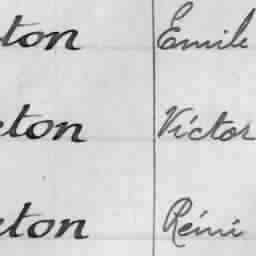 ton Emile
eton Victor
eton Rémi